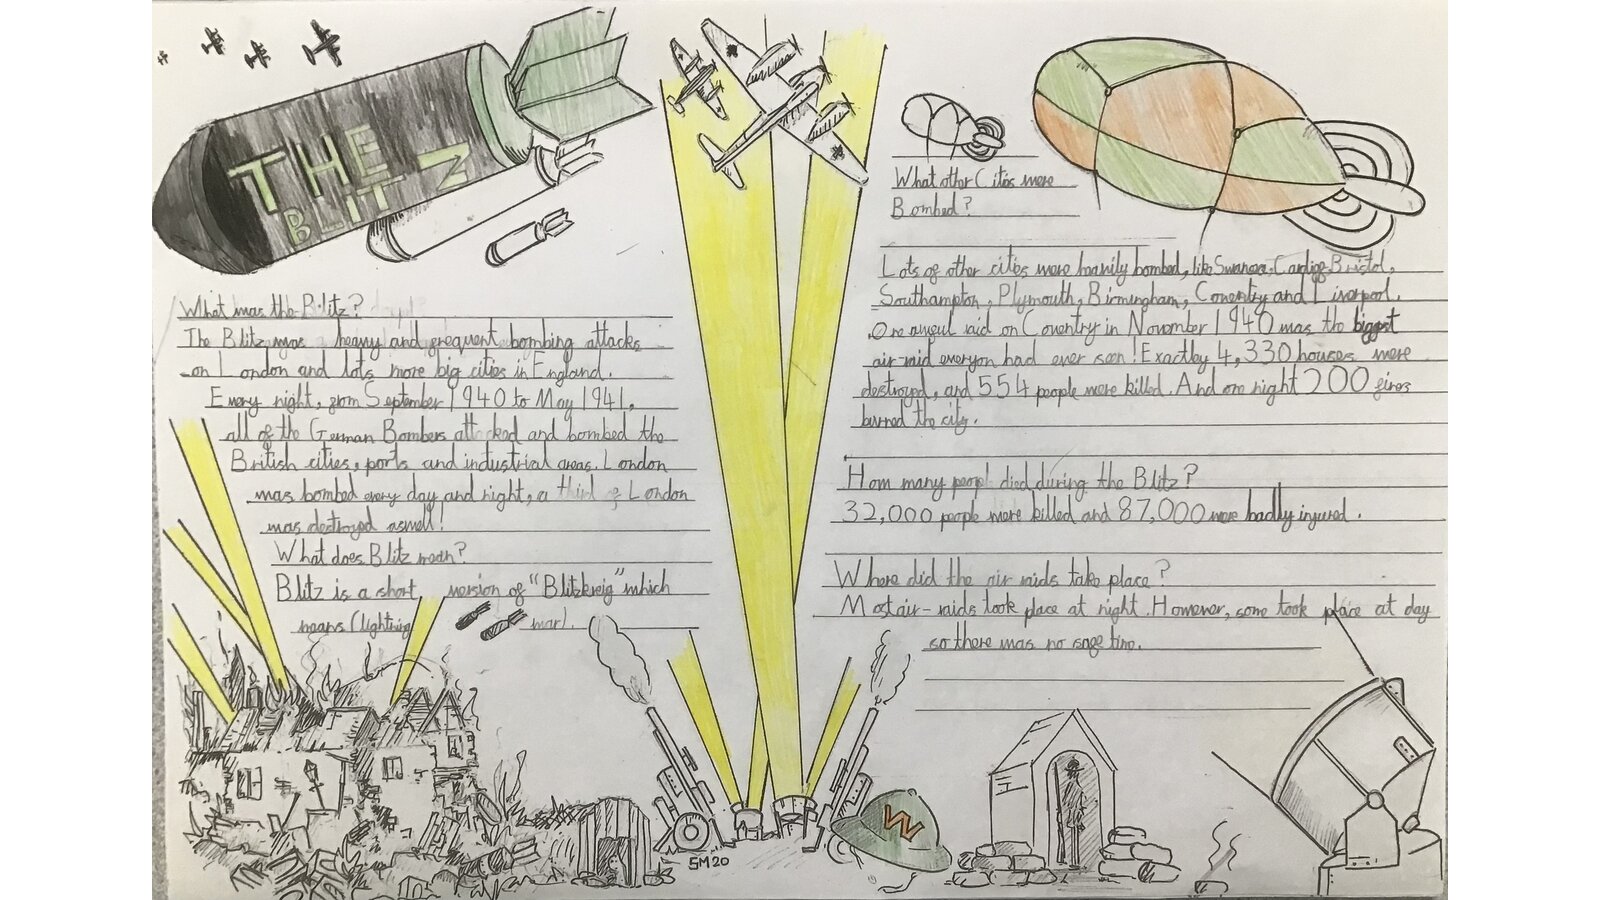 THE
BLITZ
What was the Blitz?
The Blitz was a heavy and frequent bombing attacks
on London and lots more big cities in England.
Every night, from September 1940 to May 1941,
all of the German Bombers attacked and bombed the
British cities, ports and industrial areas. London
was bombed every day and night, a third of London
was destroyed aswell!
What does Blitz mean?
Blitz is a short version of "Blitzkreig" which
means (lightning war).
What other Cities were
Bombed?
Lots of other cities were heavily bombed, like Swansea, Cardiff, Bristol,
Southampton, Plymouth, Birmingham, Coventry and Liverpool.
One awful raid on Coventry in November 1940 was the biggest
air-raid everyon had ever seen! Exactly 4,330 houses were
destroyed, and 554 people were killed. And one night 200 fires
burned the city.
How many peopl died during the Blitz?
32,000 people were killed and 87,000 were badly injured.
Where did the air raids take place?
Most air-raids took place at night. However, some took place at day
so there was no safe time.
W
SM20